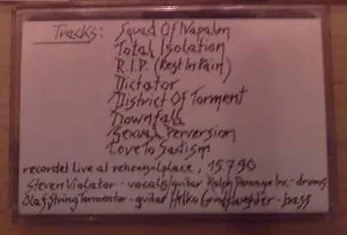 Tracks: Squad Of Napalm
Total Isolation
R.I.P. (Rest In Pain)
Dictator
District Of Torment
Downfall
Sexual Perversion
Love To Sadism
recordet live at rehearsalplace, 15.7.90
Steven Violator - vocals/guitar Ralph Damage Inc. - drums
Olaf String Tormentor - guitar Heiko - bass